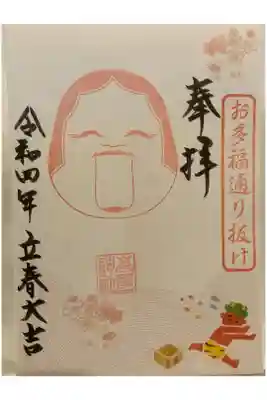 お多福通り抜け
奉拝
令和四年 立春大吉